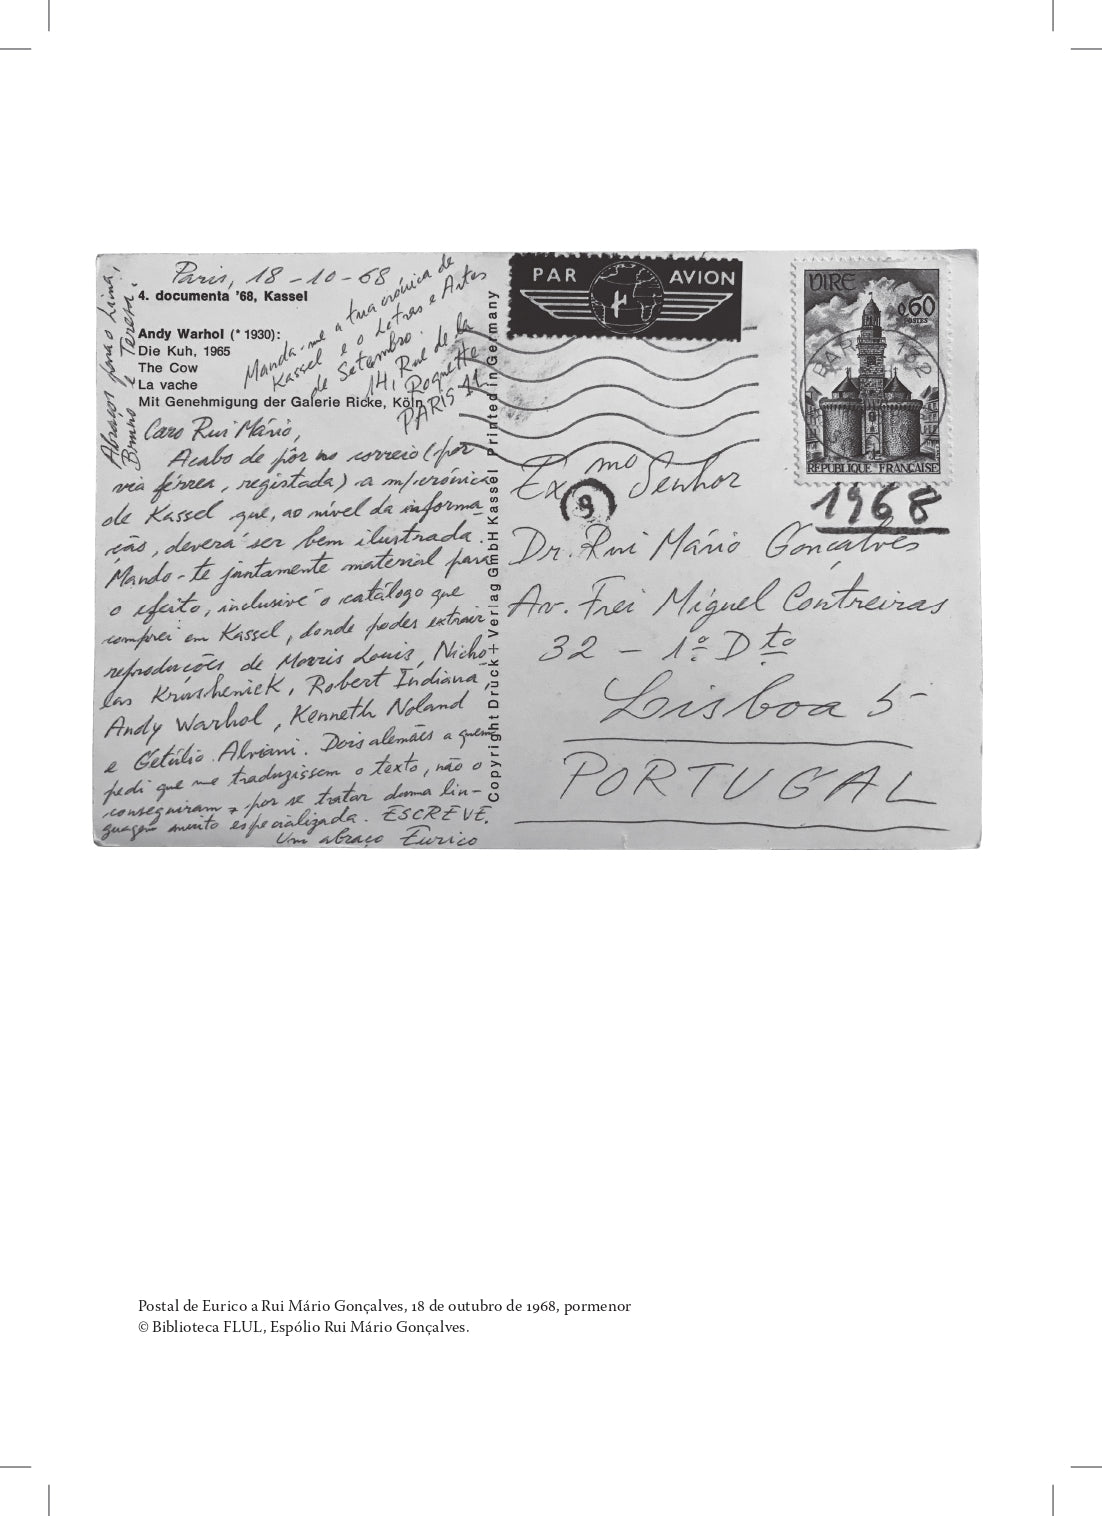 Paris, 18-10-68
4. documenta '68, Kassel
Andy Warhol (* 1930):
Die Kuh, 1965
The Cow
La vache
Mit Genehmigung der Galerie Ricke, Köln
Manda-me a tua crónica de
Kassel e o Letras e Artes
de Setembro.
14, Rue de la
Roquette
PARIS 11
Abraços para o Lima,
Bruno e Teresa.
Caro Rui Mário,
Acabo de pôr no correio (por
via férrea, registada) a m/crónica
de Kassel que, ao nível da informa-
ção, deverá ser bem ilustrada.
Mando-te juntamente material para
o efeito, inclusivé o catálogo que
comprei em Kassel, donde podes extrair
reproduções de Morris Louis, Nicho-
las Krushenick, Robert Indiana,
Andy Warhol, Kenneth Noland
e Getúlio Alviani. Dois alemães a quem
pedi que me traduzissem o texto, não o
conseguiram por se tratar duma lin-
guagem muito especializada. ESCREVE.
Um abraço Eurico
Copyright Druck + Verlag GmbH Kassel Printed in Germany
PAR AVION
VIRE
0,60
POSTES
REPUBLIQUE FRANÇAISE
1968
9
Exmo Senhor
Dr. Rui Mário Gonçalves
Av. Frei Miguel Contreiras
32 - 1º Dto
Lisboa 5
PORTUGAL
Postal de Eurico a Rui Mário Gonçalves, 18 de outubro de 1968, pormenor
© Biblioteca FLUL, Espólio Rui Mário Gonçalves.